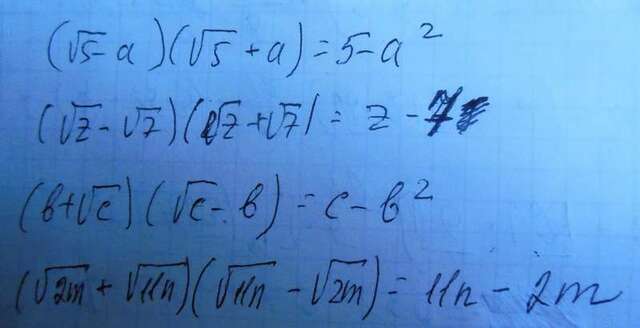 (√5 - a)(√5 + a) = 5 - a²
(√z - √7)(√z + √7) = z - 7
(в + √c)(√c - в) = c - в²
(√2m + √11n)(√11n - √2m) = 11n - 2m